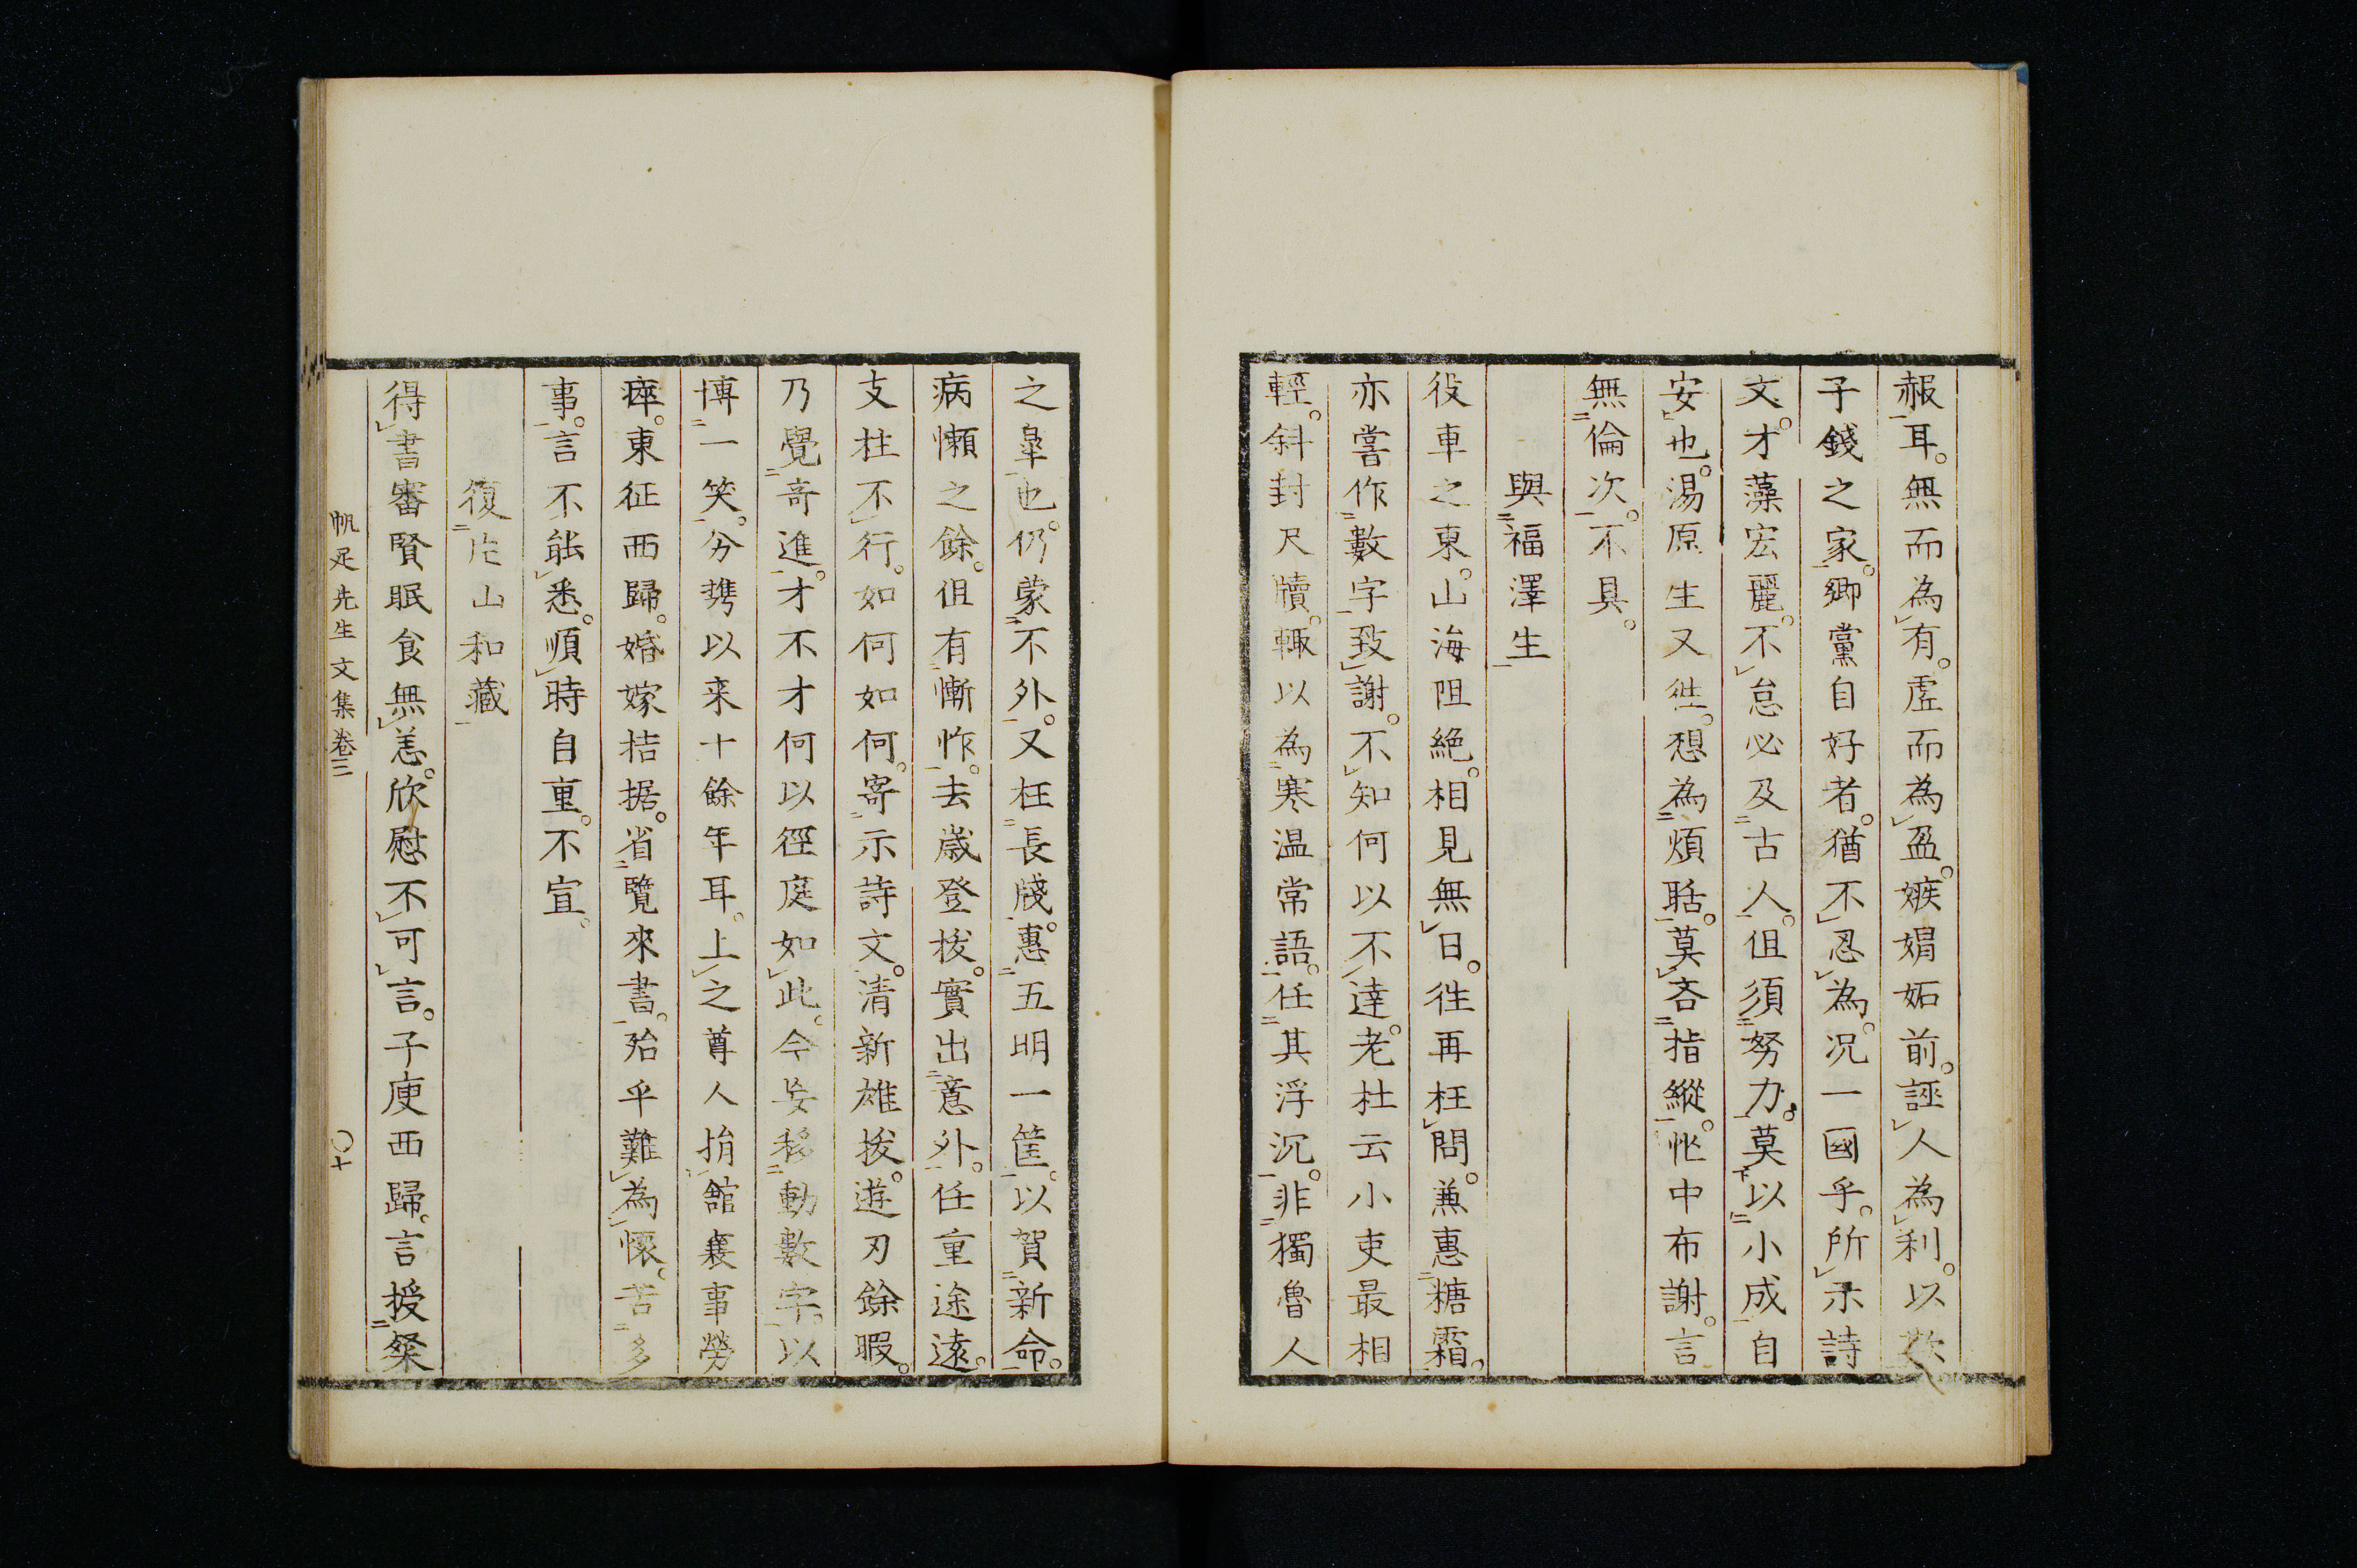 赧耳。無而為有。虛而為盈。嫉媢妬前。誣人為利。以
子錢之家。鄉黨自好者。猶不忍為。況一國乎。所示詩
文。才藻宏麗。不怠必及古人。但須努力。莫以小成自
安也。湯原生又徃。想為煩聒。莫吝指縱。忙中布謝。言
無倫次。不具。
與福澤生
役車之東。山海阻絕。相見無日。徃再枉問。兼惠糖霜。
亦嘗作數字致謝。不知何以不達。老杜云小吏最相
輕。斜封尺牘。輙以為寒温常語。任其浮沉。非獨魯人
之皐也。仍蒙不外。又枉長牋。惠五明一筐。以賀新命。
病懶之餘。但有慚怍。去歲登拔。實出意外。任重途遠。
支柱不行。如何如何。寄示詩文。清新雄拔。遊刃餘暇。
乃覺奇進。才不才何以徑庭如此。今妄移動數字。以
博一笑。分携以来十餘年耳。上之尊人捐館襄事勞
瘁。東征西歸。婚嫁拮据。省覽來書。殆乎難為懷。苦多
事。言不能悉。順時自重。不宣。
復片山和藏
得書審賢眠食無恙。欣慰不可言。子庚西歸。言授粲
帆足先生文集卷三
〇十